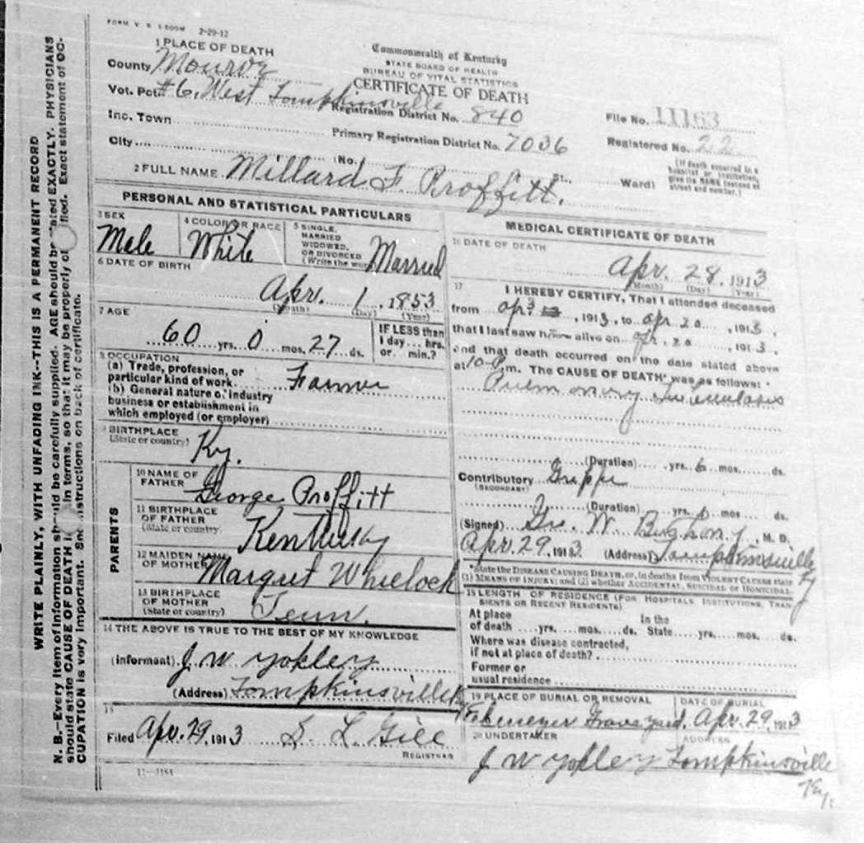 FORM V. S. 2-29-12
Commonwealth of Kentucky
STATE BOARD OF HEALTH
BUREAU OF VITAL STATISTICS
CERTIFICATE OF DEATH
1 PLACE OF DEATH
County Monroe
Vot. Pct. #6. West Tompkinsville
Registration District No. 840
File No. 11163
Inc. Town
Primary Registration District No. 7036
Registered No. 22
City
(No. St. Ward)
(If death occurred in a hospital or institution, give its NAME instead of street and number.)
2 FULL NAME Millard F. Proffitt.
PERSONAL AND STATISTICAL PARTICULARS
3 SEX
Male
4 COLOR OR RACE
White
5 SINGLE, MARRIED WIDOWED, OR DIVORCED
(Write the word)
Married
6 DATE OF BIRTH
Apr. 1, 1853
(Month) (Day) (Year)
7 AGE
60 yrs. 0 mos. 27 ds.
IF LESS than 1 day... hrs. or... min.?
8 OCCUPATION
(a) Trade, profession, or particular kind of work Farmer
(b) General nature of industry business or establishment in which employed (or employer)
9 BIRTHPLACE
(State or country)
Ky.
PARENTS
10 NAME OF FATHER
George Proffitt
11 BIRTHPLACE OF FATHER
(State or country)
Kentucky
12 MAIDEN NAME OF MOTHER
Margret Wheelock
13 BIRTHPLACE OF MOTHER
(State or country)
Tenn.
14 THE ABOVE IS TRUE TO THE BEST OF MY KNOWLEDGE
(Informant) J W Yokley
(Address) Tompkinsville Ky
15
Filed Apr. 29, 1913 S. L. Gill
REGISTRAR
11-3184
MEDICAL CERTIFICATE OF DEATH
16 DATE OF DEATH
Apr. 28, 1913
(Month) (Day) (Year)
17 I HEREBY CERTIFY, That I attended deceased
from apr 3, 1913, to apr 20, 1913,
that I last saw him alive on apr. 20, 1913,
and that death occurred on the date stated above
at 10 P m. The CAUSE OF DEATH was as follows:
Pulmonary Tuberculosis
(Duration) yrs. 6 mos. ds.
Contributory Grippe
(SECONDARY)
(Duration) yrs. mos. ds.
(Signed) Geo. W. M. D.
Apr. 29, 1913 (Address) Tompkinsville Ky
*State the DISEASE CAUSING DEATH, or, in deaths from VIOLENT CAUSES state
(1) MEANS OF INJURY; and (2) whether ACCIDENTAL, SUICIDAL or HOMICIDAL.
18 LENGTH OF RESIDENCE (FOR HOSPITALS, INSTITUTIONS, TRANSIENTS OR RECENT RESIDENTS)
At place of death yrs. mos. ds. In the State yrs. mos. ds.
Where was disease contracted,
if not at place of death?
Former or
usual residence
19 PLACE OF BURIAL OR REMOVAL
Ebenezer Grave yard.
DATE OF BURIAL
Apr. 29, 1913
20 UNDERTAKER
J W Yokley
ADDRESS
Tompkinsville Ky.
WRITE PLAINLY, WITH UNFADING INK--THIS IS A PERMANENT RECORD
N. B.--Every item of information should be carefully supplied. AGE should be stated EXACTLY. PHYSICIANS
should state CAUSE OF DEATH in terms, so that it may be properly classified. Exact statement of OC-
CUPATION is very important. See instructions on back of certificate.